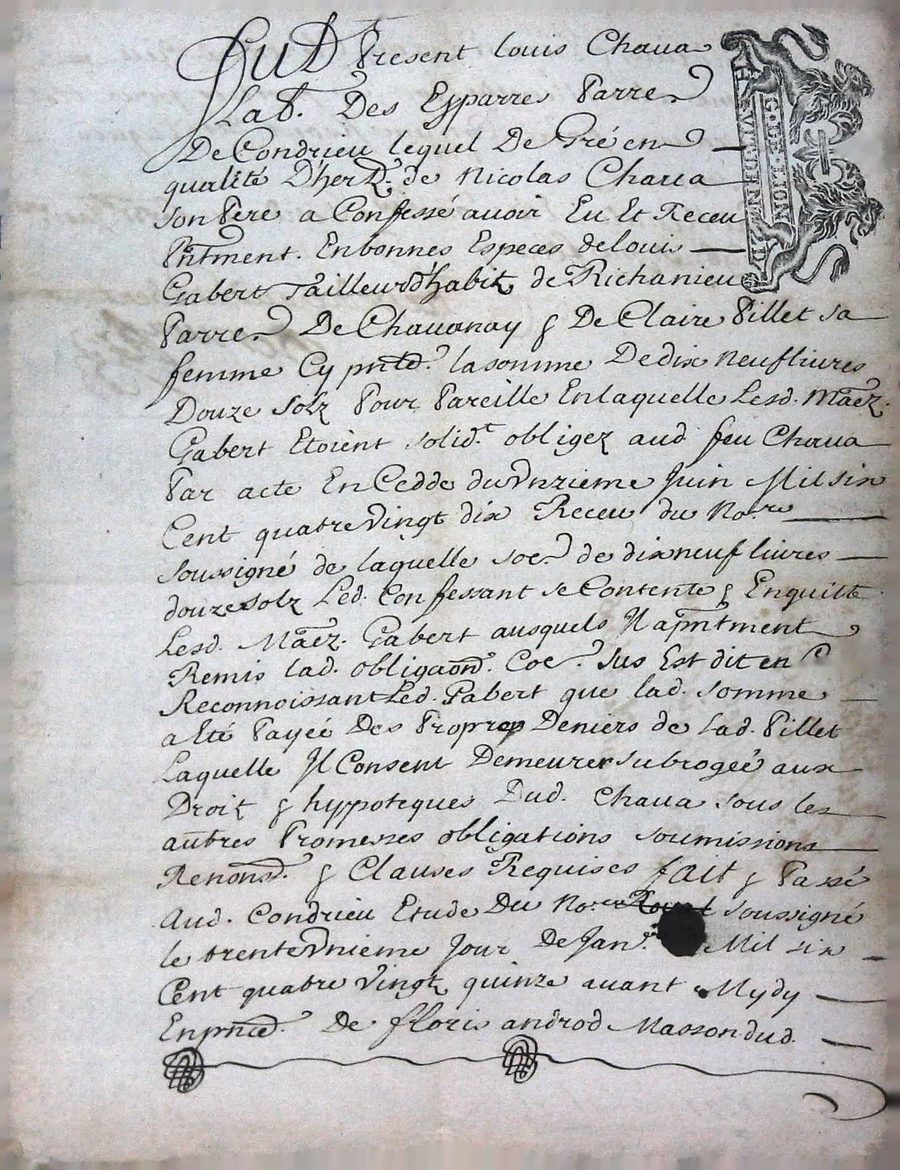 Fud Present Louis Chaua
Lab. Des Esparres Parre
De Condrieu lequel De Gré en
qualité D'her. de Nicolas Chaua
son Pere a Confessé auoir Eu Et Receu
Pntment. En bonnes Especes de louis
Gabert Tailleur d'habit de Richanieu
Parre De Chauanay & De Claire Pillet sa
femme Cy pnte. la somme De dix neuf liures
Douze solz Pour Pareille En laquelle Lesd. Maez.
Gabert Etoient solid.t obligez aud feu Chaua
Par acte En Cedde du Vnzieme Juin Mil six
Cent quatre Vingt dix Receu du No.re
soussigné de laquelle soe. de dix neuf liures
douze solz Led. Confessant se Contente & En quitte
Lesd. Maez. Gabert ausquels Il a pntment
Remis lad. obligaon. Coe. sus Est dit en
Reconnoissant Led. Gabert que lad. somme
a Eté Payée Des Propres Deniers de Lad. Pillet
Laquelle Il Consent Demeurer subrogée aux
Droit & hyppoteques Dud. Chaua sous les
autres Promesses obligations soumissions
Renons. & Clauses Requises fait & Passé
Aud. Condrieu Etude Du No.re soussigné
le trente Vnieme Jour De Jan. Mil six
Cent quatre Vingt quinze auant Mydy
En pnce. De floris androd Masson dud.
G. DE LION